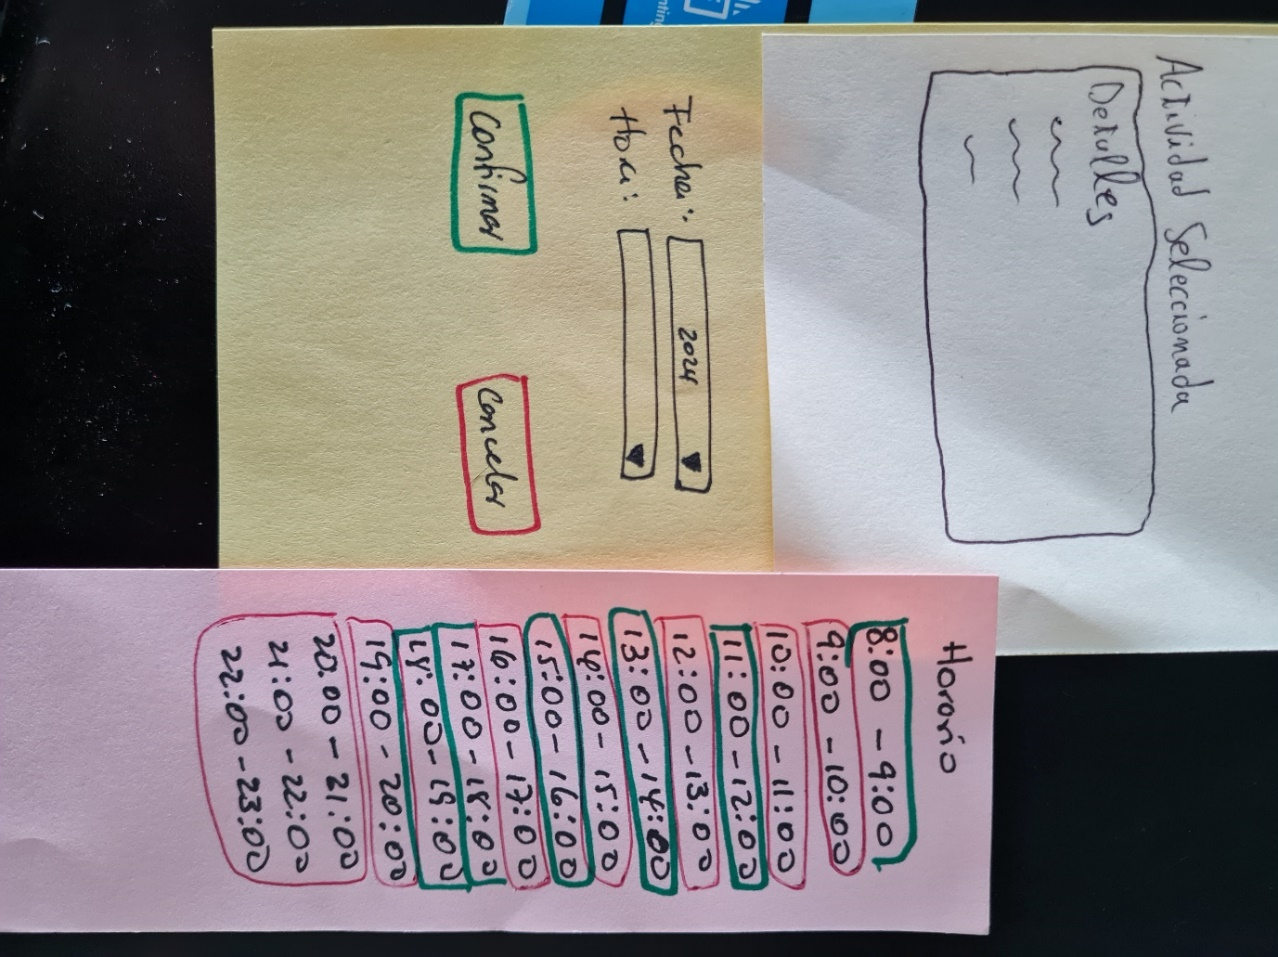 Actividad Seleccionada
Detalles
Fecha: 2024
Hora:
Confirmar
Cancelar
Horario
8:00 - 9:00
9:00 - 10:00
10:00 - 11:00
11:00 - 12:00
12:00 - 13:00
13:00 - 14:00
14:00 - 15:00
15:00 - 16:00
16:00 - 17:00
17:00 - 18:00
18:00 - 19:00
19:00 - 20:00
20:00 - 21:00
21:00 - 22:00
22:00 - 23:00